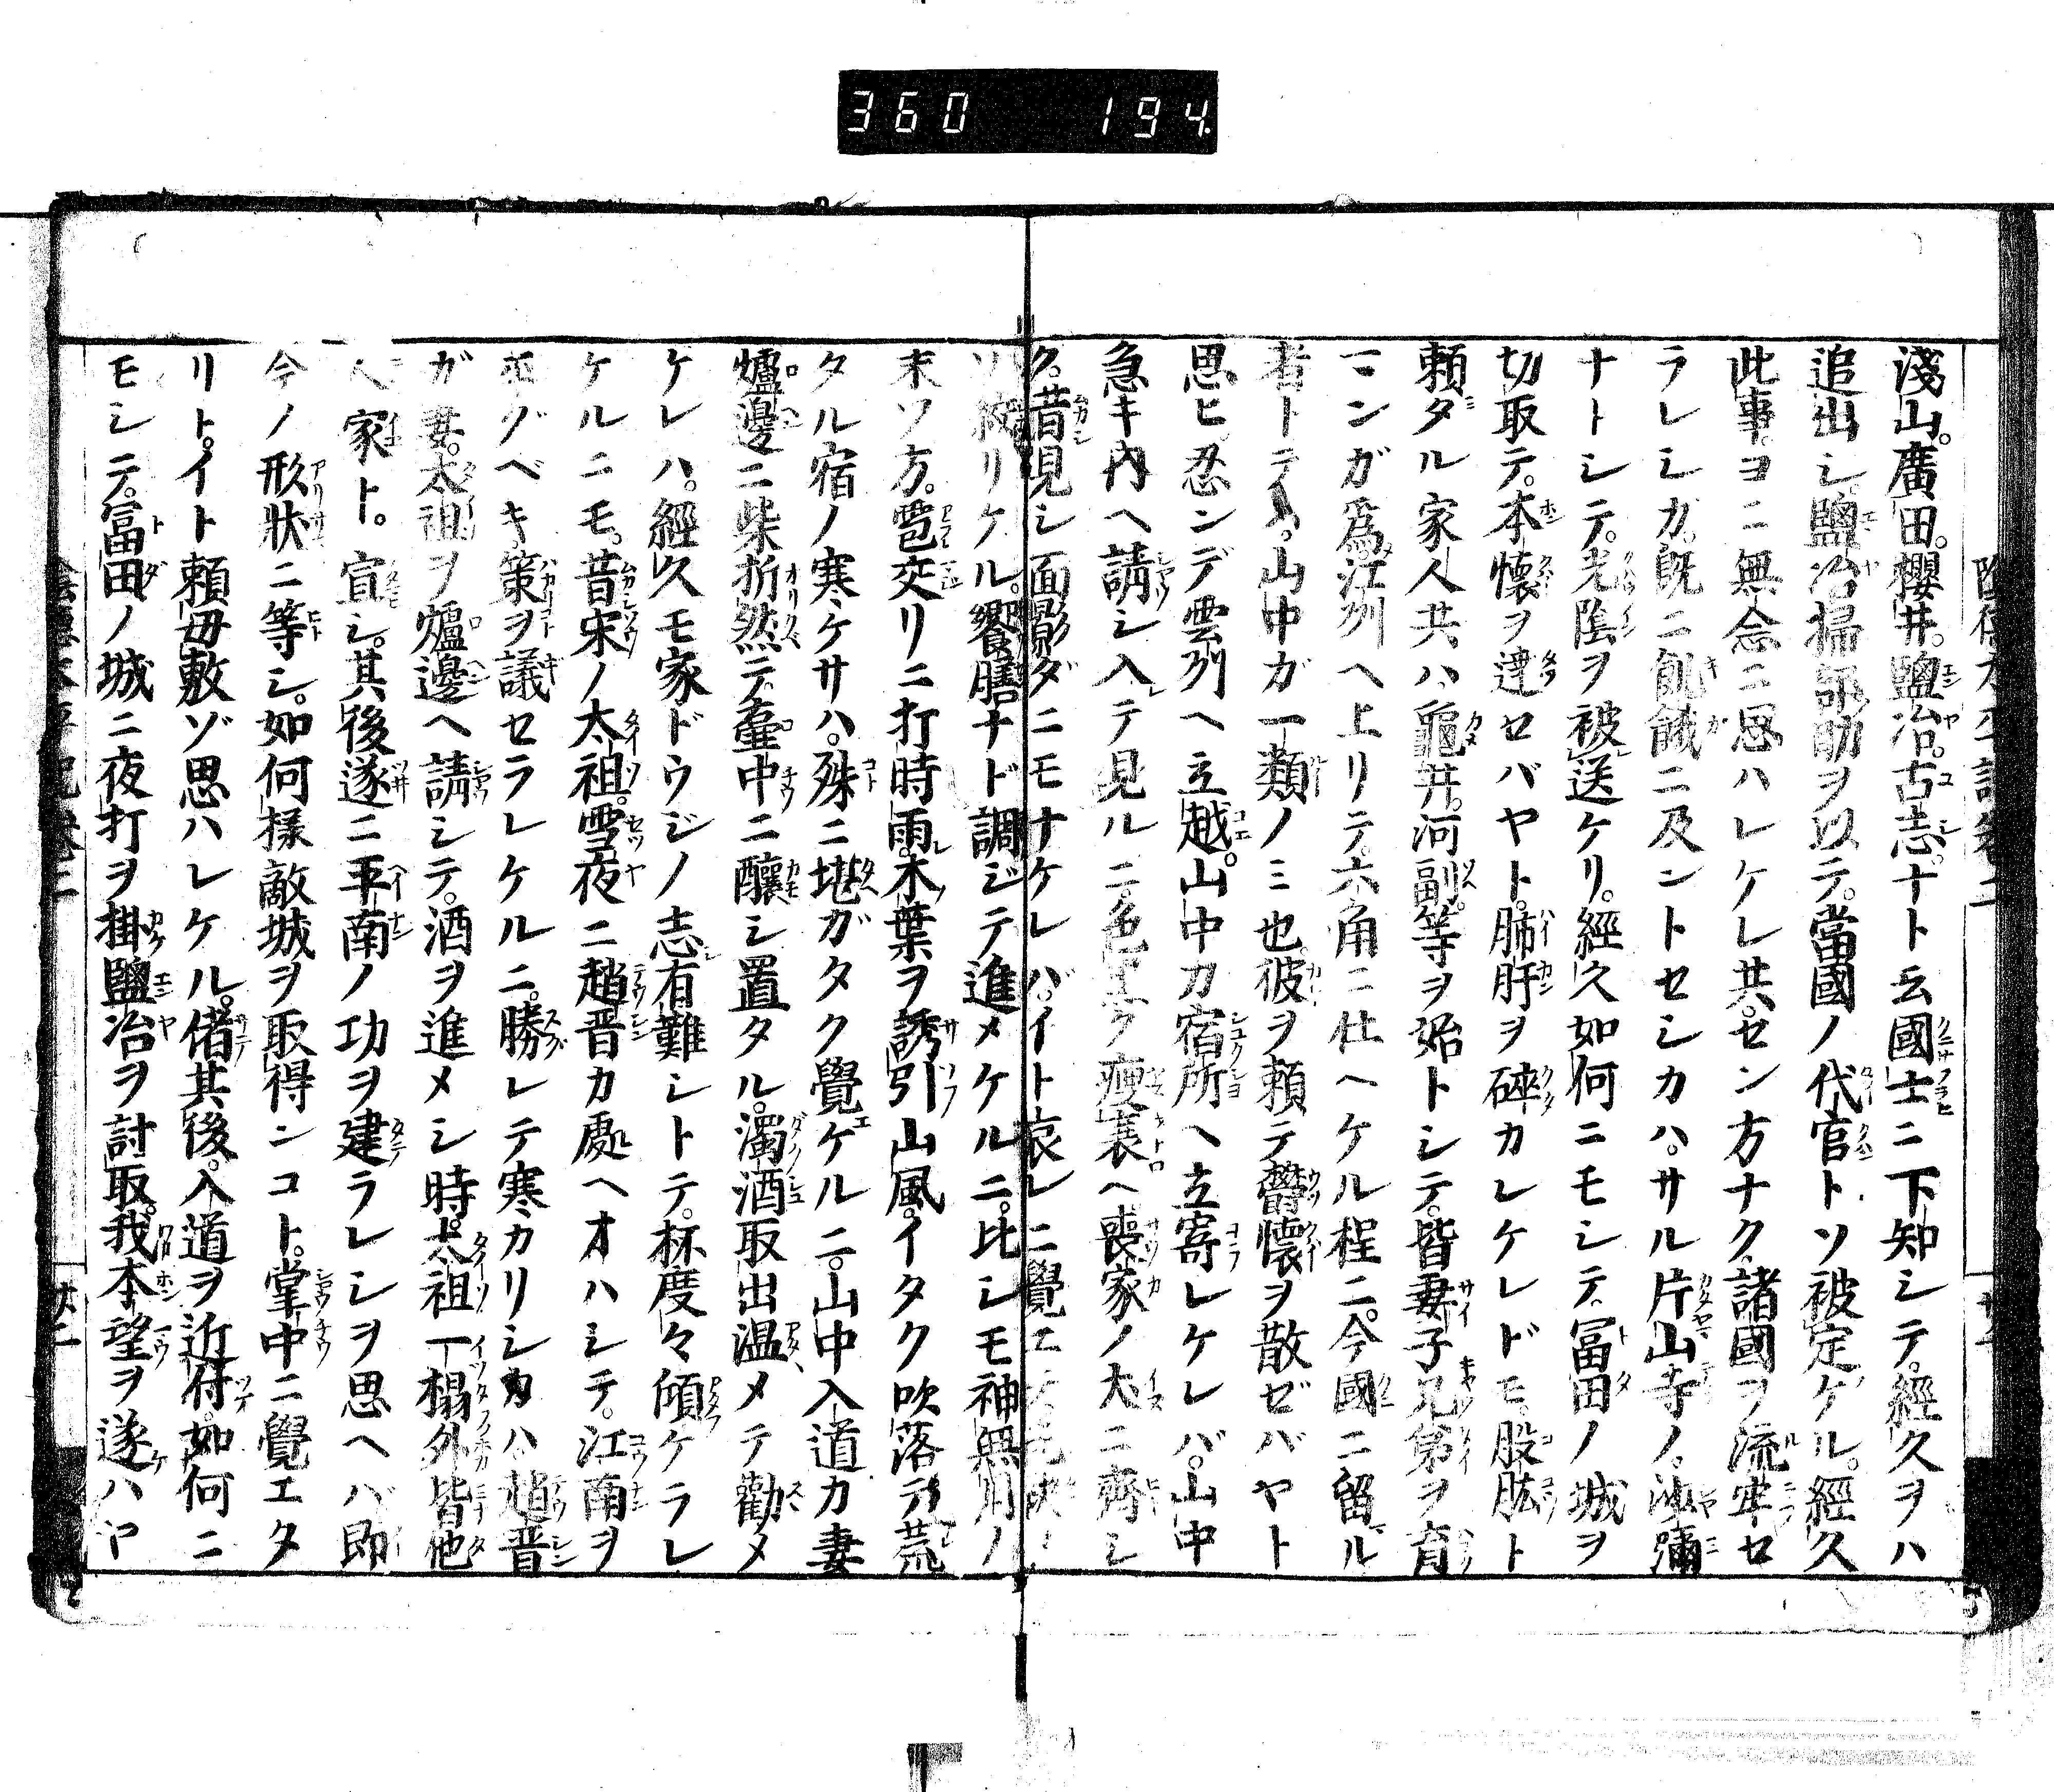 360 194
淺山。廣田。櫻井。鹽冶。古志。ナト云國士ニ下知シテ。經久ヲハ
追出シ。鹽冶掃部助ヲ以テ。當國ノ代官トソ被定ケル。經久
此事。ヨニ無念ニ思ハレケレ共。セン方ナク。諸國ヲ流牢セ
ラレシカ。既ニ飢餓ニ及ントセシカハ。サル片山寺ノ。沙彌
ナトシテ。光陰ヲ被送ケリ。經久如何ニモシテ。冨田ノ城ヲ
切取テ。本懷ヲ達セバヤト。肺肝ヲ碎カレケレドモ。股肱ト
頼タル家人共ハ。龜井。河副。等ヲ始トシテ。皆妻子兄弟ヲ育
マンガ爲。江州ヘ上リテ。六角ニ仕ヘケル程ニ。今國ニ留ル
者トテハ。山中ガ一類ノミ也。彼ヲ頼テ鬱懷ヲ散ゼバヤト
思ヒ。忍ンデ雲州ヘ立越。山中カ宿所ヘ立寄レケレバ。山中
急キ内ヘ請シ入テ見ルニ。色黒ク瘦衰ヘ喪家ノ犬ニ齊シ
ク。昔見シ面影ダニモナケレバ。イト哀レニ覺エ
ソ絞リケル。饗膳ナド調ジテ進メケルニ。比シモ神無月ノ
末ツ方。雹交リニ打時雨。木葉ヲ誘引山風。イタク吹落テ荒
タル宿ノ寒ケサハ。殊ニ堪ガタク覺ケルニ。山中入道カ妻
爐邊ニ柴折然テ。壷中ニ釀シ置タル。濁酒取出温メテ勸メ
ケレハ。經久モ家ドウジノ志有難シトテ。杯度々傾ケラレ
ケルニモ。昔宋ノ太祖。雪夜ニ趙晋カ處ヘオハシテ。江南ヲ
平グベキ。策ヲ議セラレケルニ。勝レテ寒カリシカハ趙晋
ガ妻。太祖ヲ爐邊ヘ請シテ。酒ヲ進メシ時。太祖一榻外皆他
人家ト。宣シ。其後遂ニ平南ノ功ヲ建ラレシヲ思ヘハ即
今ノ形狀ニ等シ。如何樣敵城ヲ取得ンコト。掌中ニ覺エタ
リト。イト頼母敷ゾ思ハレケル。偖其後。入道ヲ近付。如何ニ
モシテ。冨田ノ城ニ夜打ヲ掛鹽冶ヲ討取。我本望ヲ遂ハヤ